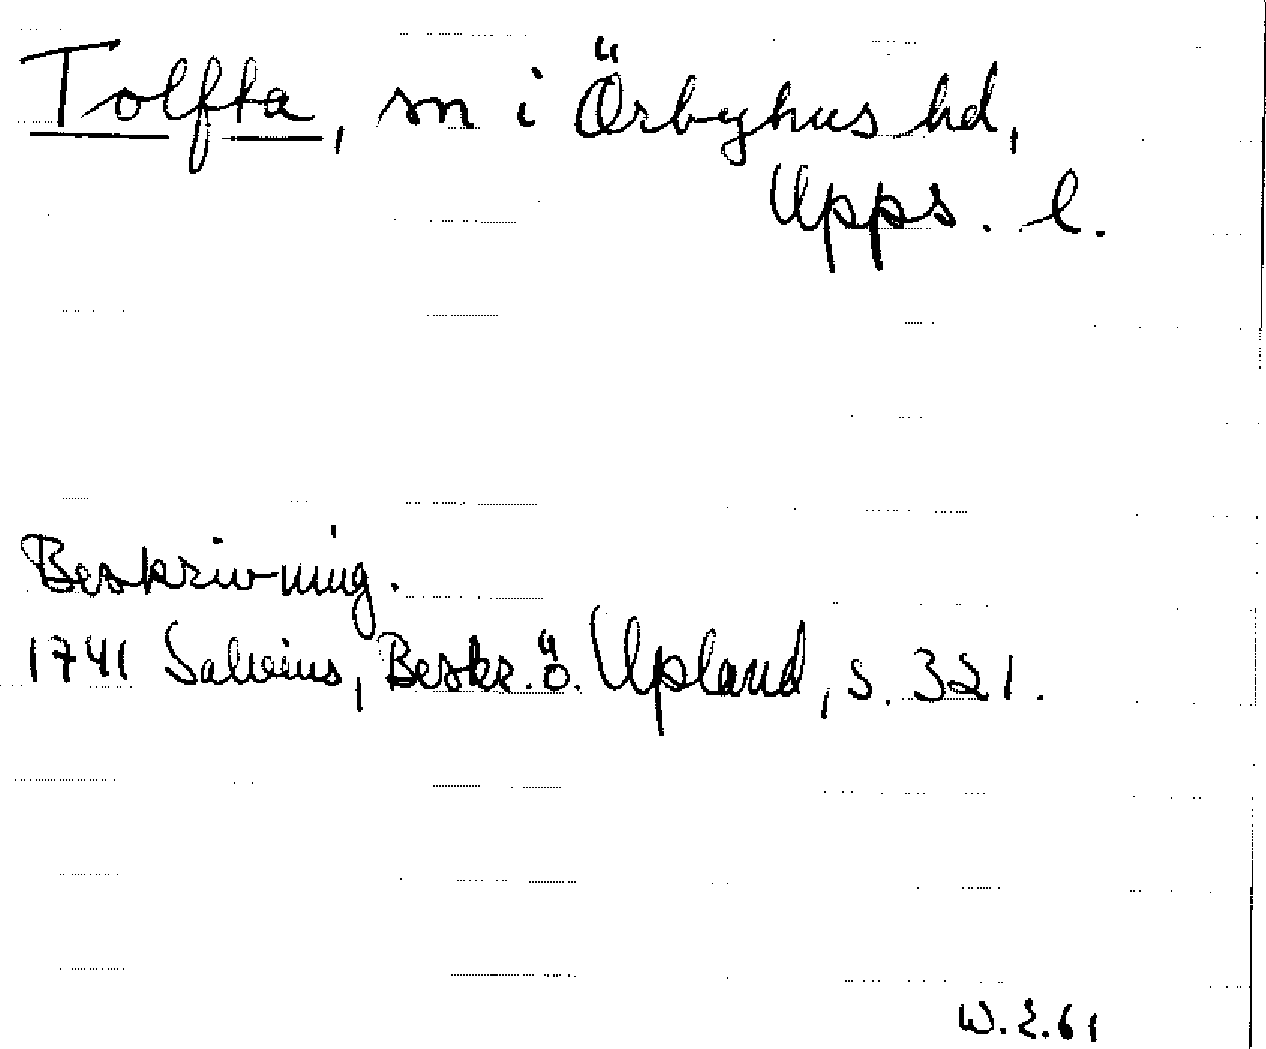 Tolfta, sn i Örbyhus hd,
Upps. l.
Beskrivning.
1741 Salvius, Beskr. ö. Upland, s. 321.
W. E. 61